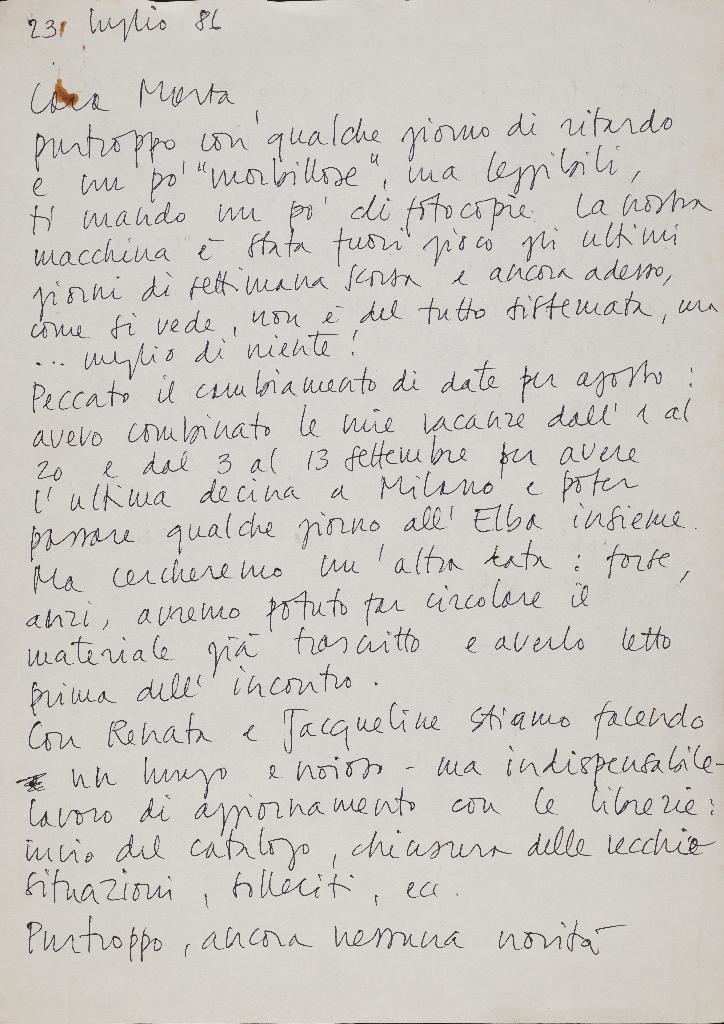 23 luglio 86
Cara Marta,
purtroppo con qualche giorno di ritardo
e un po' "morbillose", ma leggibili,
ti mando un po' di fotocopie. La nostra
macchina è stata fuori gioco gli ultimi
giorni di settimana scorsa e ancora adesso,
come si vede, non è del tutto sistemata, ma
... meglio di niente!
Peccato il cambiamento di date per agosto:
avevo combinato le mie vacanze dall'1 al
20 e dal 3 al 13 settembre per avere
l'ultima decina a Milano e poter
passare qualche giorno all'Elba insieme.
Ma cercheremo un'altra data: forse,
anzi, avremo potuto far circolare il
materiale già trascritto e averlo letto
prima dell'incontro.
Con Renata e Jacqueline stiamo facendo
un lungo e noioso - ma indispensabile -
lavoro di aggiornamento con le librerie:
invio del catalogo, chiusura delle vecchie
situazioni, solleciti, ecc.
Purtroppo, ancora nessuna novità